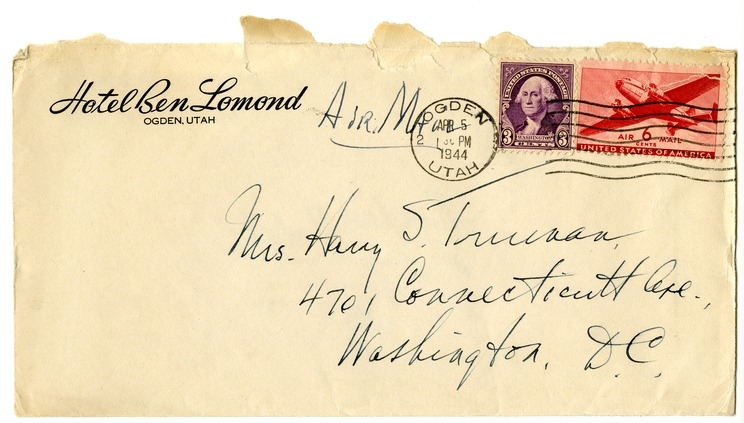 Hotel Ben Lomond
OGDEN, UTAH
Air Mail
OGDEN
APR 5
2
1 30 PM
1944
UTAH
UNITED STATES POSTAGE
3 WASHINGTON 3
AIR 6 MAIL
CENTS
UNITED STATES OF AMERICA
Mrs. Harry S. Truman,
4701 Connecticutt Ave.,
Washington, D.C.